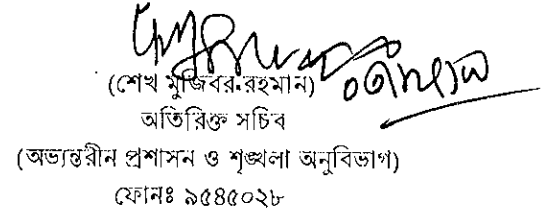 (শেখ মুজিবর রহমান)
অতিরিক্ত সচিব
(অভ্যন্তরীন প্রশাসন ও শৃঙ্খলা অনুবিভাগ)
ফোনঃ ৯৫৪৫০২৮